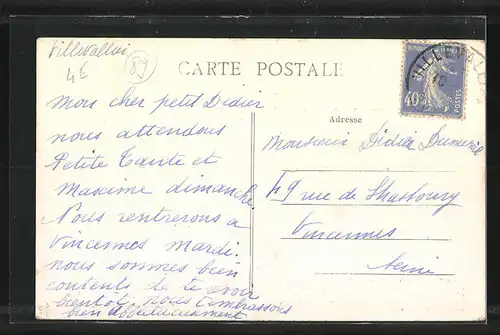 Villevallier
4E
89
CARTE POSTALE
REPUBLIQUE FRANÇAISE
40c
POSTES
VILLEVALLIER
Adresse
Mon cher petit Didier
nous attendons
Petite Tante et
Maxime dimanche
Nous rentrerons a
Vincennes mardi.
nous sommes bien
contents de te voir
bientot. nous t'embrassons
bien affectueusement
Monsieur Didier
49 rue de Strasbourg
Vincennes
Seine